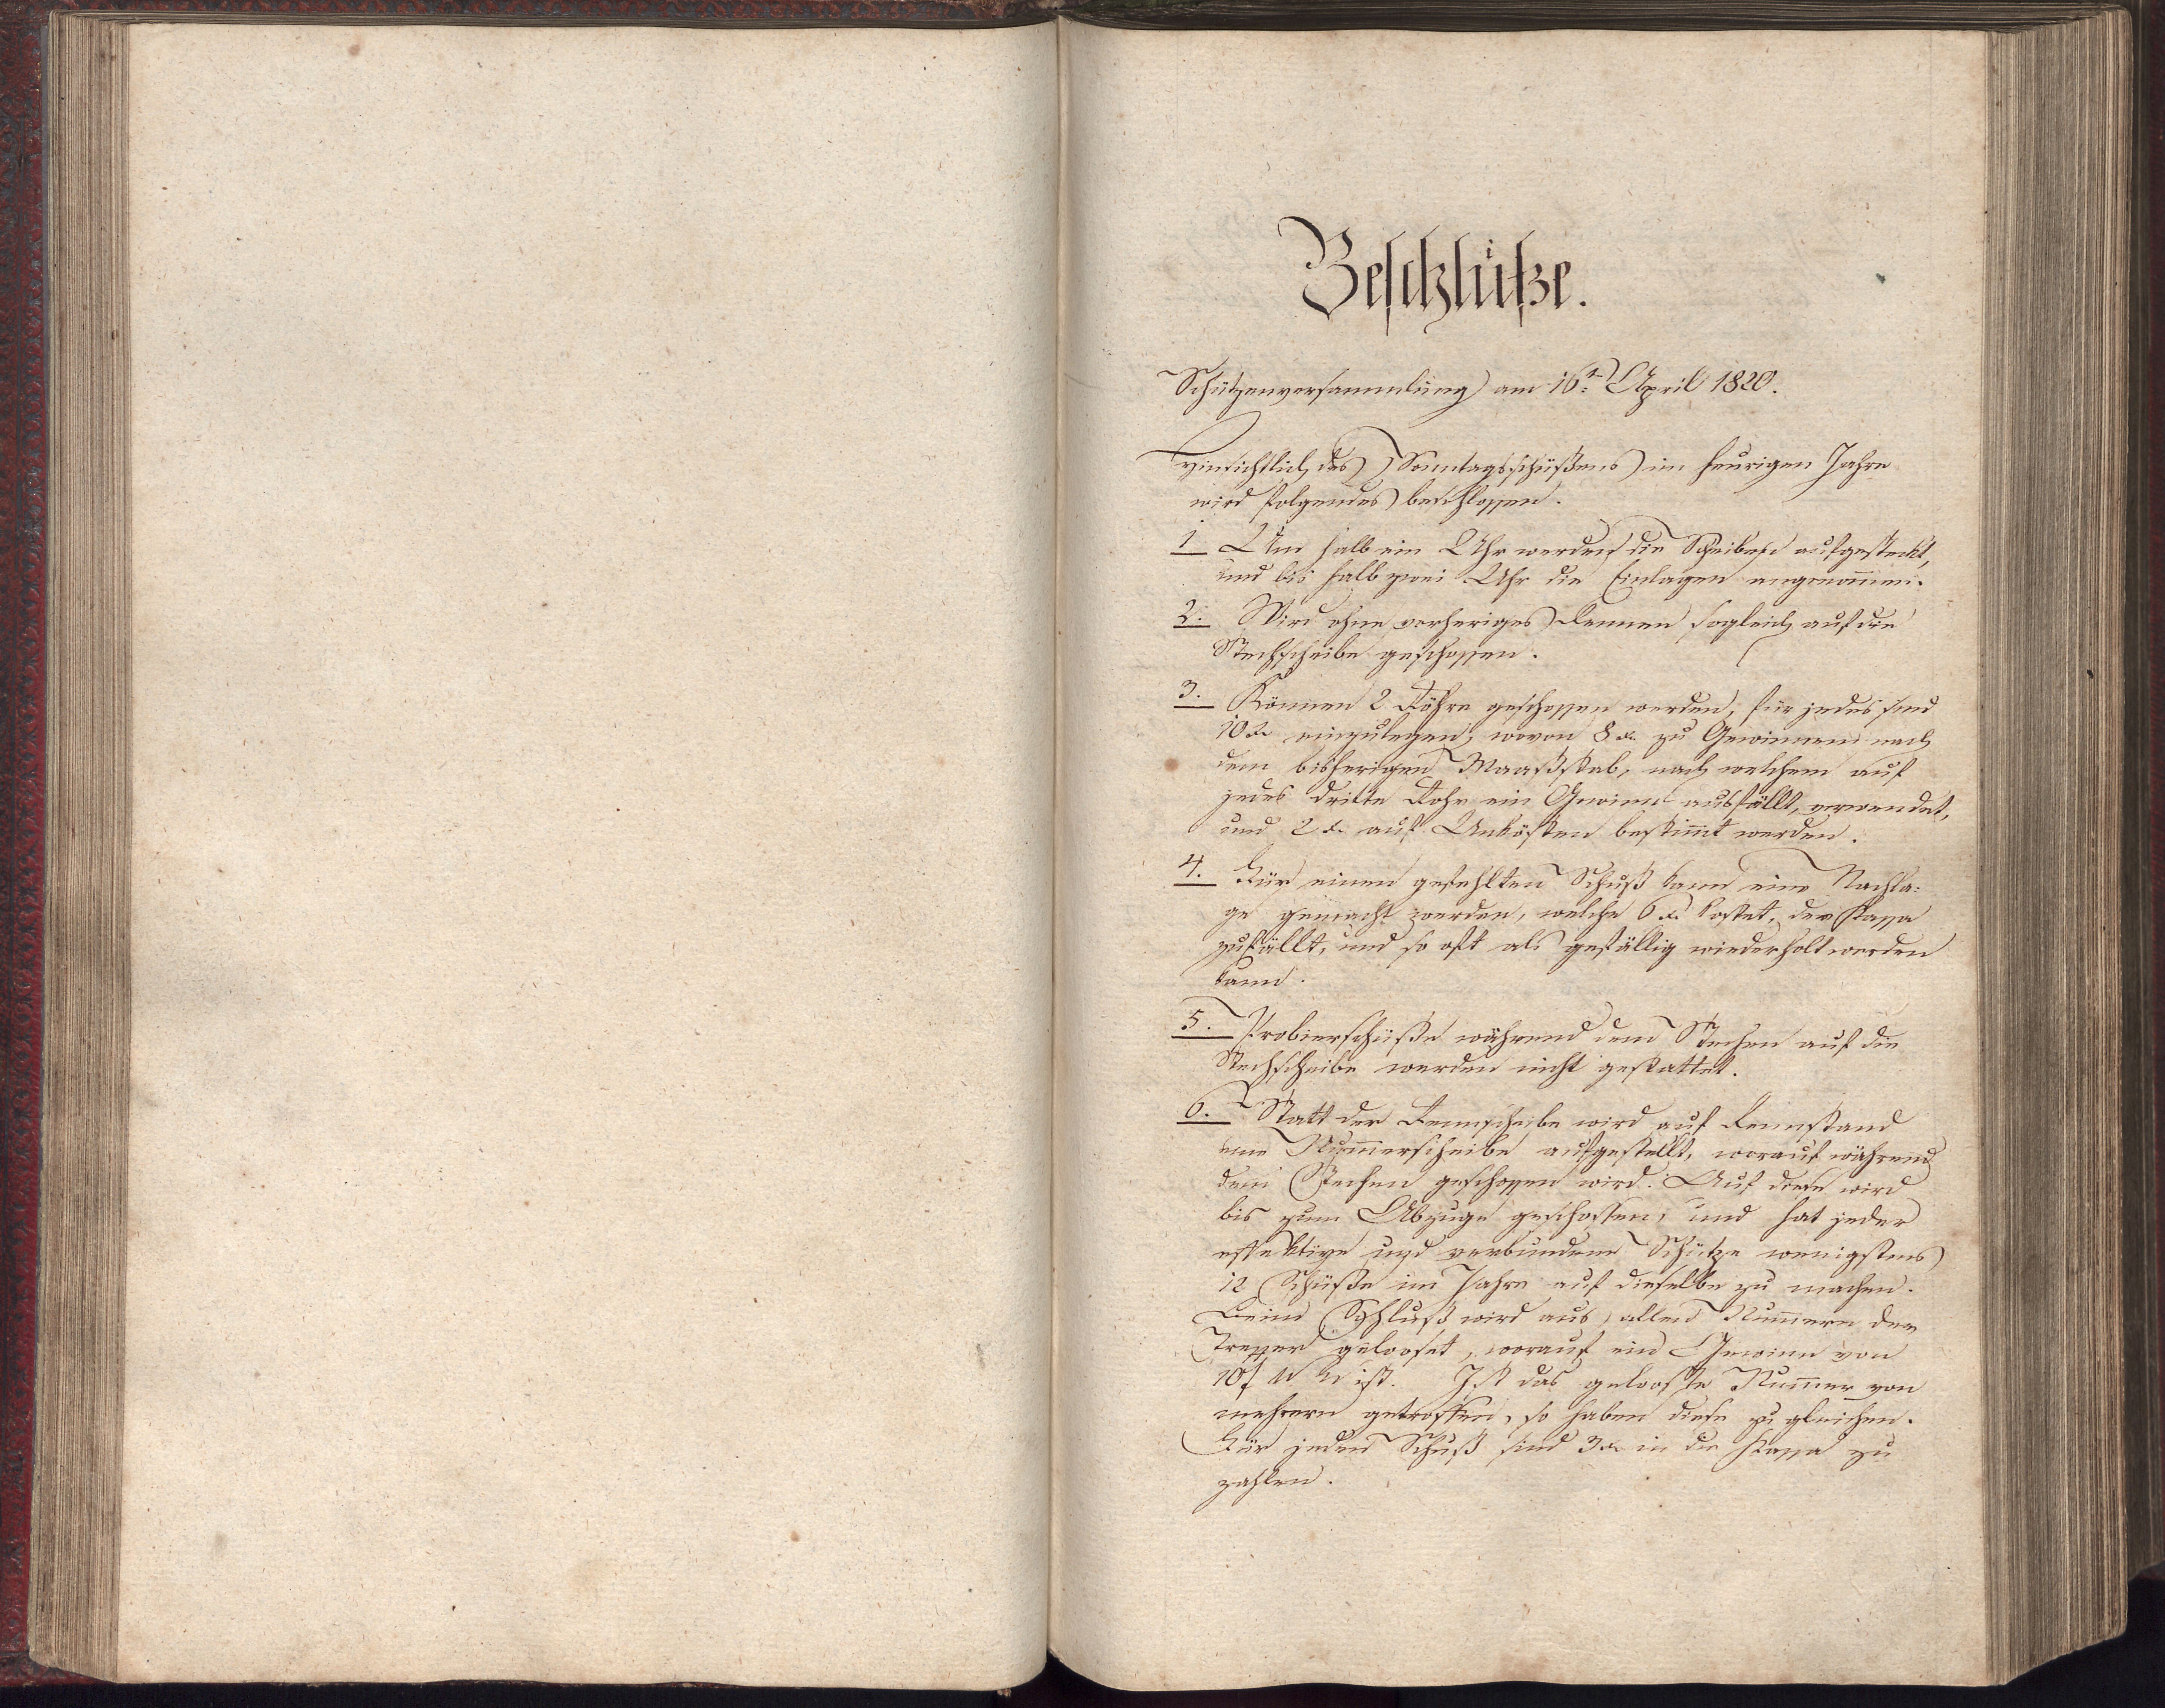 Beschlüße.
Schützenversammlung am 16t: April 1820.
Hinsichtlich des Sonntagsschüßens im heurigen Jahre
wird folgendes beschlossen.
1 Um halb ein Uhr werden die Scheiben aufgesteckt,
und bis halb zwei Uhr die Einlagen angenom̄en.
2. Wird ohne vorheriges Rennen sogleich auf die
Stechscheibe geschossen.
3. Können 2 Röhre geschossen werden, für jedes sind
10 x. einzulegen, wovon 8 x. zu Gewinnen nach
dem bisherigen Maaßstab, nach welchem auf
jedes dritte Rohr ein Gewinn ausfällt, verwendet,
und 2 x. auf Unkösten bestim̄t werden.
4. Für einen gefehlten Schuß kann eine Nachla:
ge gemacht werden, welche 6 x. kostet, der Kassa
zufällt, und so oft als gefällig wiederholt werden
kann.
5. Probierschüße während dem Stechen auf die
Stechscheibe werden nicht gestattet.
6. Statt der Rennscheibe wird auf Rennstand
eine Num̄erscheibe aufgestellt, worauf während
dem Stechen geschossen wird. Auf diese wird
bis zum Abzuge geschossen, und hat jeder
effektive und verbundene Schütze wenigstens
12 Schüße im Jahre auf dieselbe zu machen.
Beim Schluß wird aus allen Num̄ern der
Treffer gelooset, worauf ein Gewinn von
10 f ist. Ist das gelooste Num̄er von
mehrern getroffen, so haben diese zu gleichen.
Für jeden Schuß sind 3 x. in die Kassa zu
zahlen.